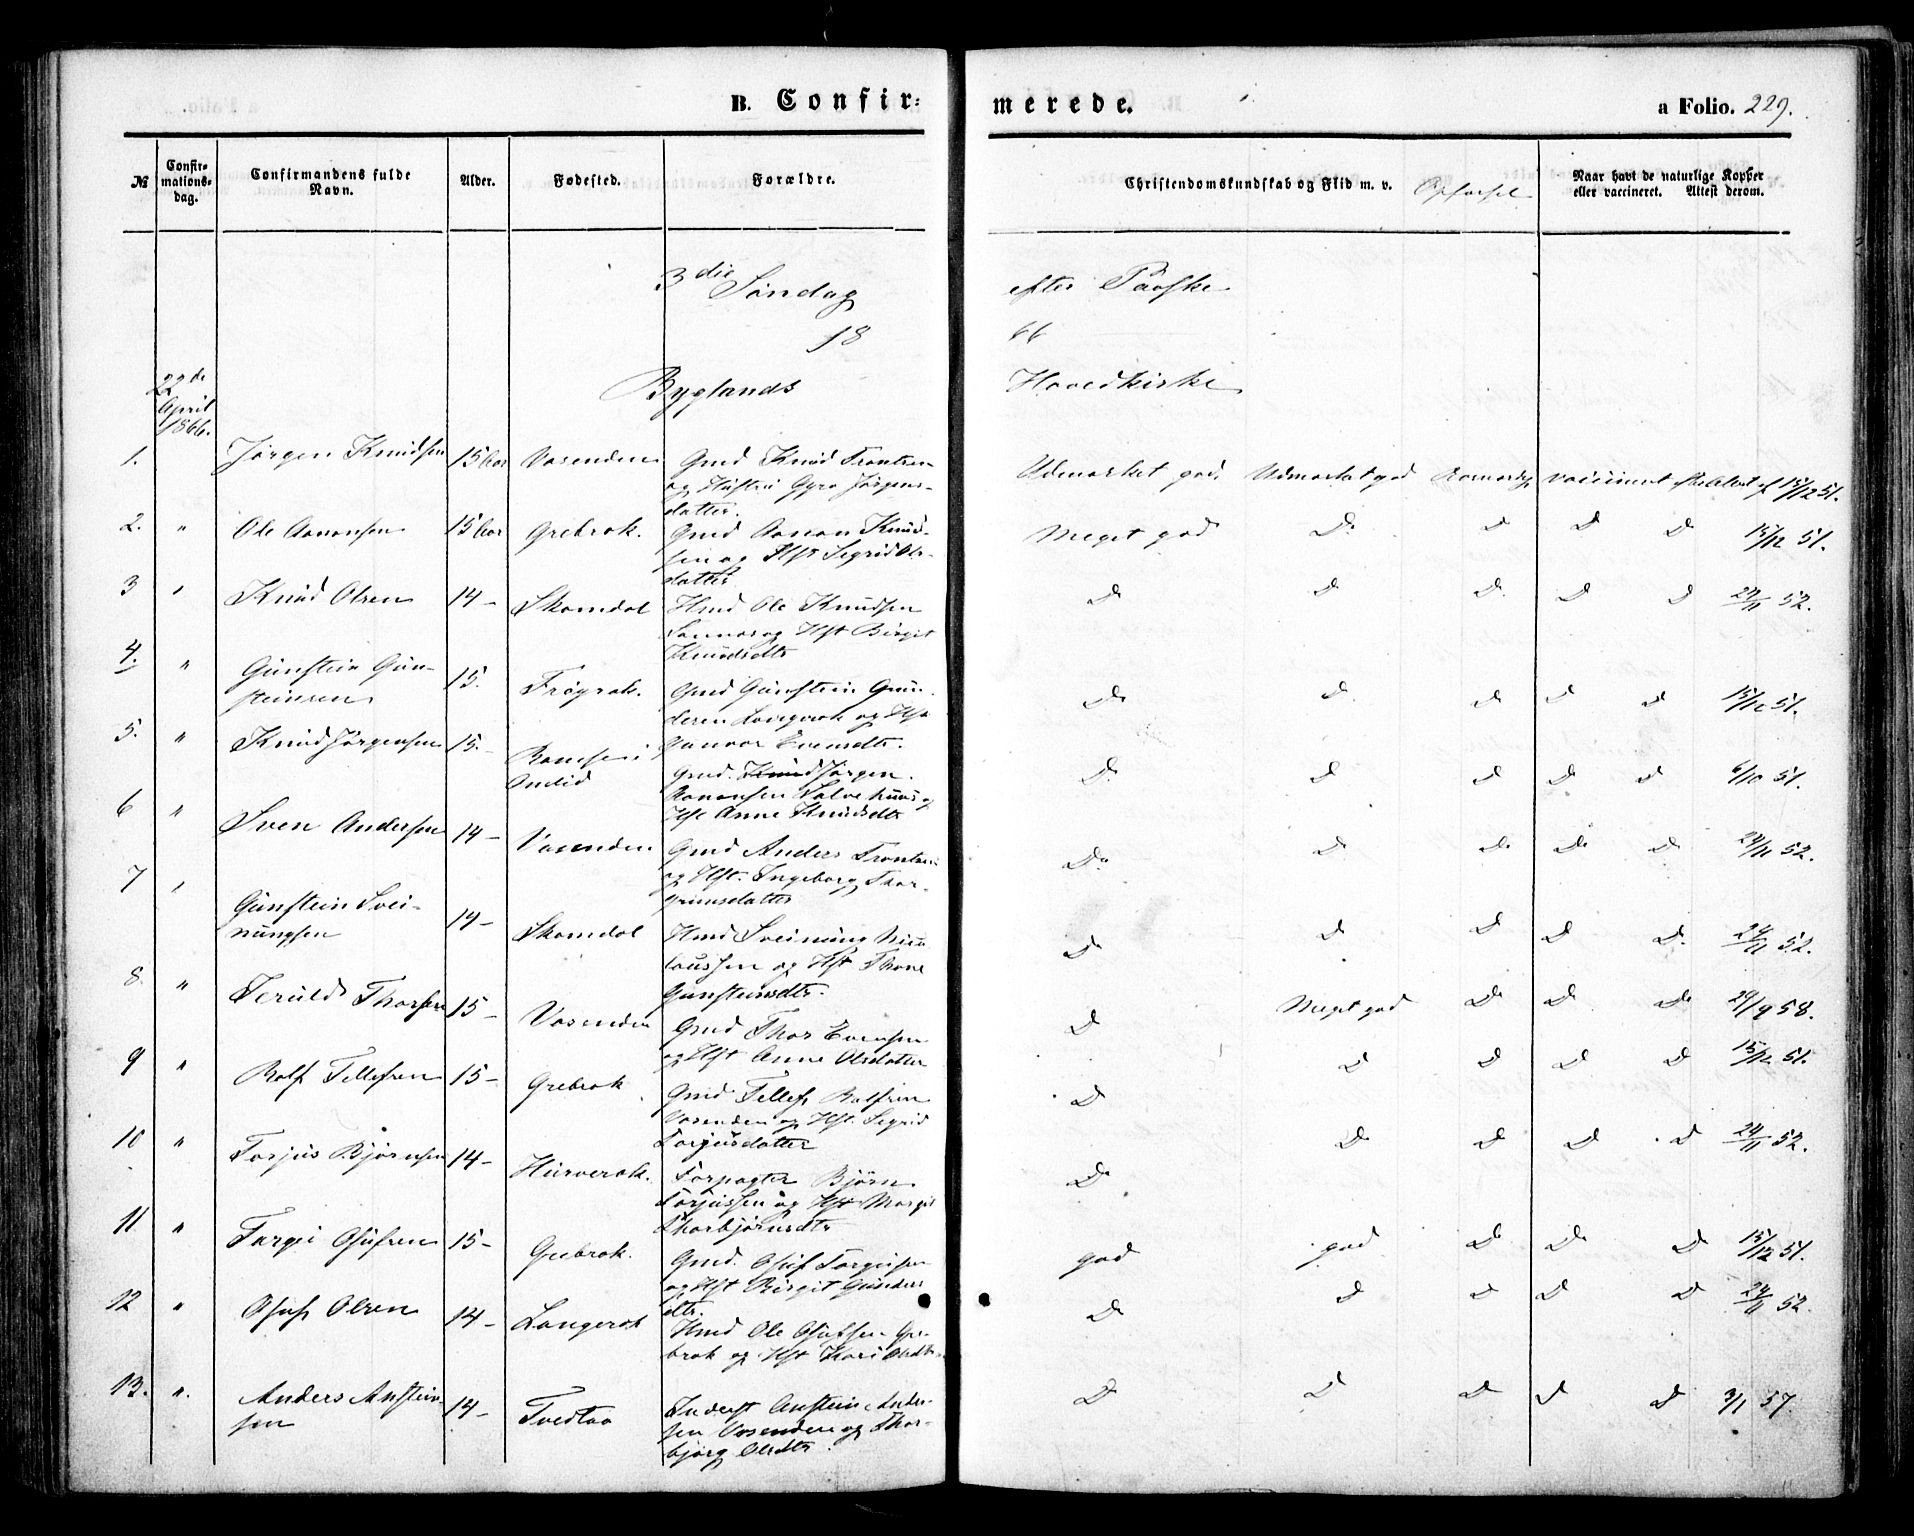 B. Confir:
merede.
a Folio. 229.
№
Confir-
mations-
dag.
Confirmandens fulde
Navn.
Alder.
Fødested.
Forældre.
Christendomskundskab og Flid m. v.
Opførsel
Naar havt de naturlige Kopper
eller vaccineret. Attest derom.
3die Søndag
efter Paaske
18
66
Byglands
Hovedkirke
22de
April
1866.
1.
Jørgen Knudsen
15 Aar
Vasenden
Gmd Knud Trontsen
og Hustru Gyro Jørgens-
datter.
Udmærket god.
Udmærket god
vaccineret
15/12 51.
2. "
Ole Aanonsen
15 Aar
Grebrok.
Gmd Aanon Knud-
sen og Hst Sigrid Ols-
datter
Meget god
D
D
D
D
15/12 51.
3 "
Knud Olsen
14 -
Skomdal
Hmd Ole Knudsen
og Hst Birgit
Knudsdtr
D
D
D
D
D
24/11 52.
4. "
Gunstein Gun-
steinsen
15.
Frøyrak.
Gmd Gunstein Gun-
dersen Langerak og Hst
Gunvor Evensdtr.
D
D
D
D
D
15/12 51.
5. "
Knud Jørgensen
15. -
Gmd. Knud Jørgen
Aanonsen
Hst Anne Knudsdtr
D
D
D
D
D
6/10 51.
6 "
Sven Andersen
14 -
Vasenden
Gmd Anders Trontsen
og Hst. Ingeborg Thor-
grimsdatter
D
D
D
D
D
24/11 52.
7 "
Gunstein Svei-
nungsen
14 -
Skomdal
Hmd Sveinung Nico
laussen og Hst Thone
Gunsteinsdtr.
D
D
D
D
D.
24/11 52.
8 "
Terulds Thorsen
15 -
Vasenden
Gmd Thor Evensen
og Hst Anne Olsdatter
D
Meget god
D
D
D
29/9 58.
9 "
Rolf Tellefsen
15 -
Grebrok
Gmd Tellef Rolfsen
Vasenden og Hst. Sigrid
Torjusdatter
D
D
D
D
D
15/12 51.
10 "
Torjus Bjørnsen
14 -
Hurverak.
Forpagter Bjørn
Torjussen og Hst Margit
Thorbjørnsdtr
D
D
D
D
D
24/11 52.
11 "
Targei Osufsen
15 -
Grebrok.
Gmd. Osuf Targeisen
og Hst Birgit Gunders
dtr.
god
god
D
D
D
15/12 51.
12 "
Osuf Olsen
14 -
Langerak
Hmd Ole Osufsen Gre-
brok og Hst Kari Olsdtr
D
D
D
D
D
24/11 52.
13. "
Anders Anstein-
sen
14 -
Tvedtaa
Inderst Anstein Ander-
sen Vasenden og Thor-
bjørg Olsdtr
D
D
D
D
D
3/1 57.